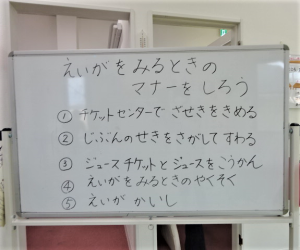 えいがをみるときの
マナーをしろう
① チケットセンターで ざせきをきめる
② じぶんのせきをさがしてすわる
③ ジュースチケットとジュースをこうかん
④ えいがをみるときのやくそく
⑤ えいが かいし